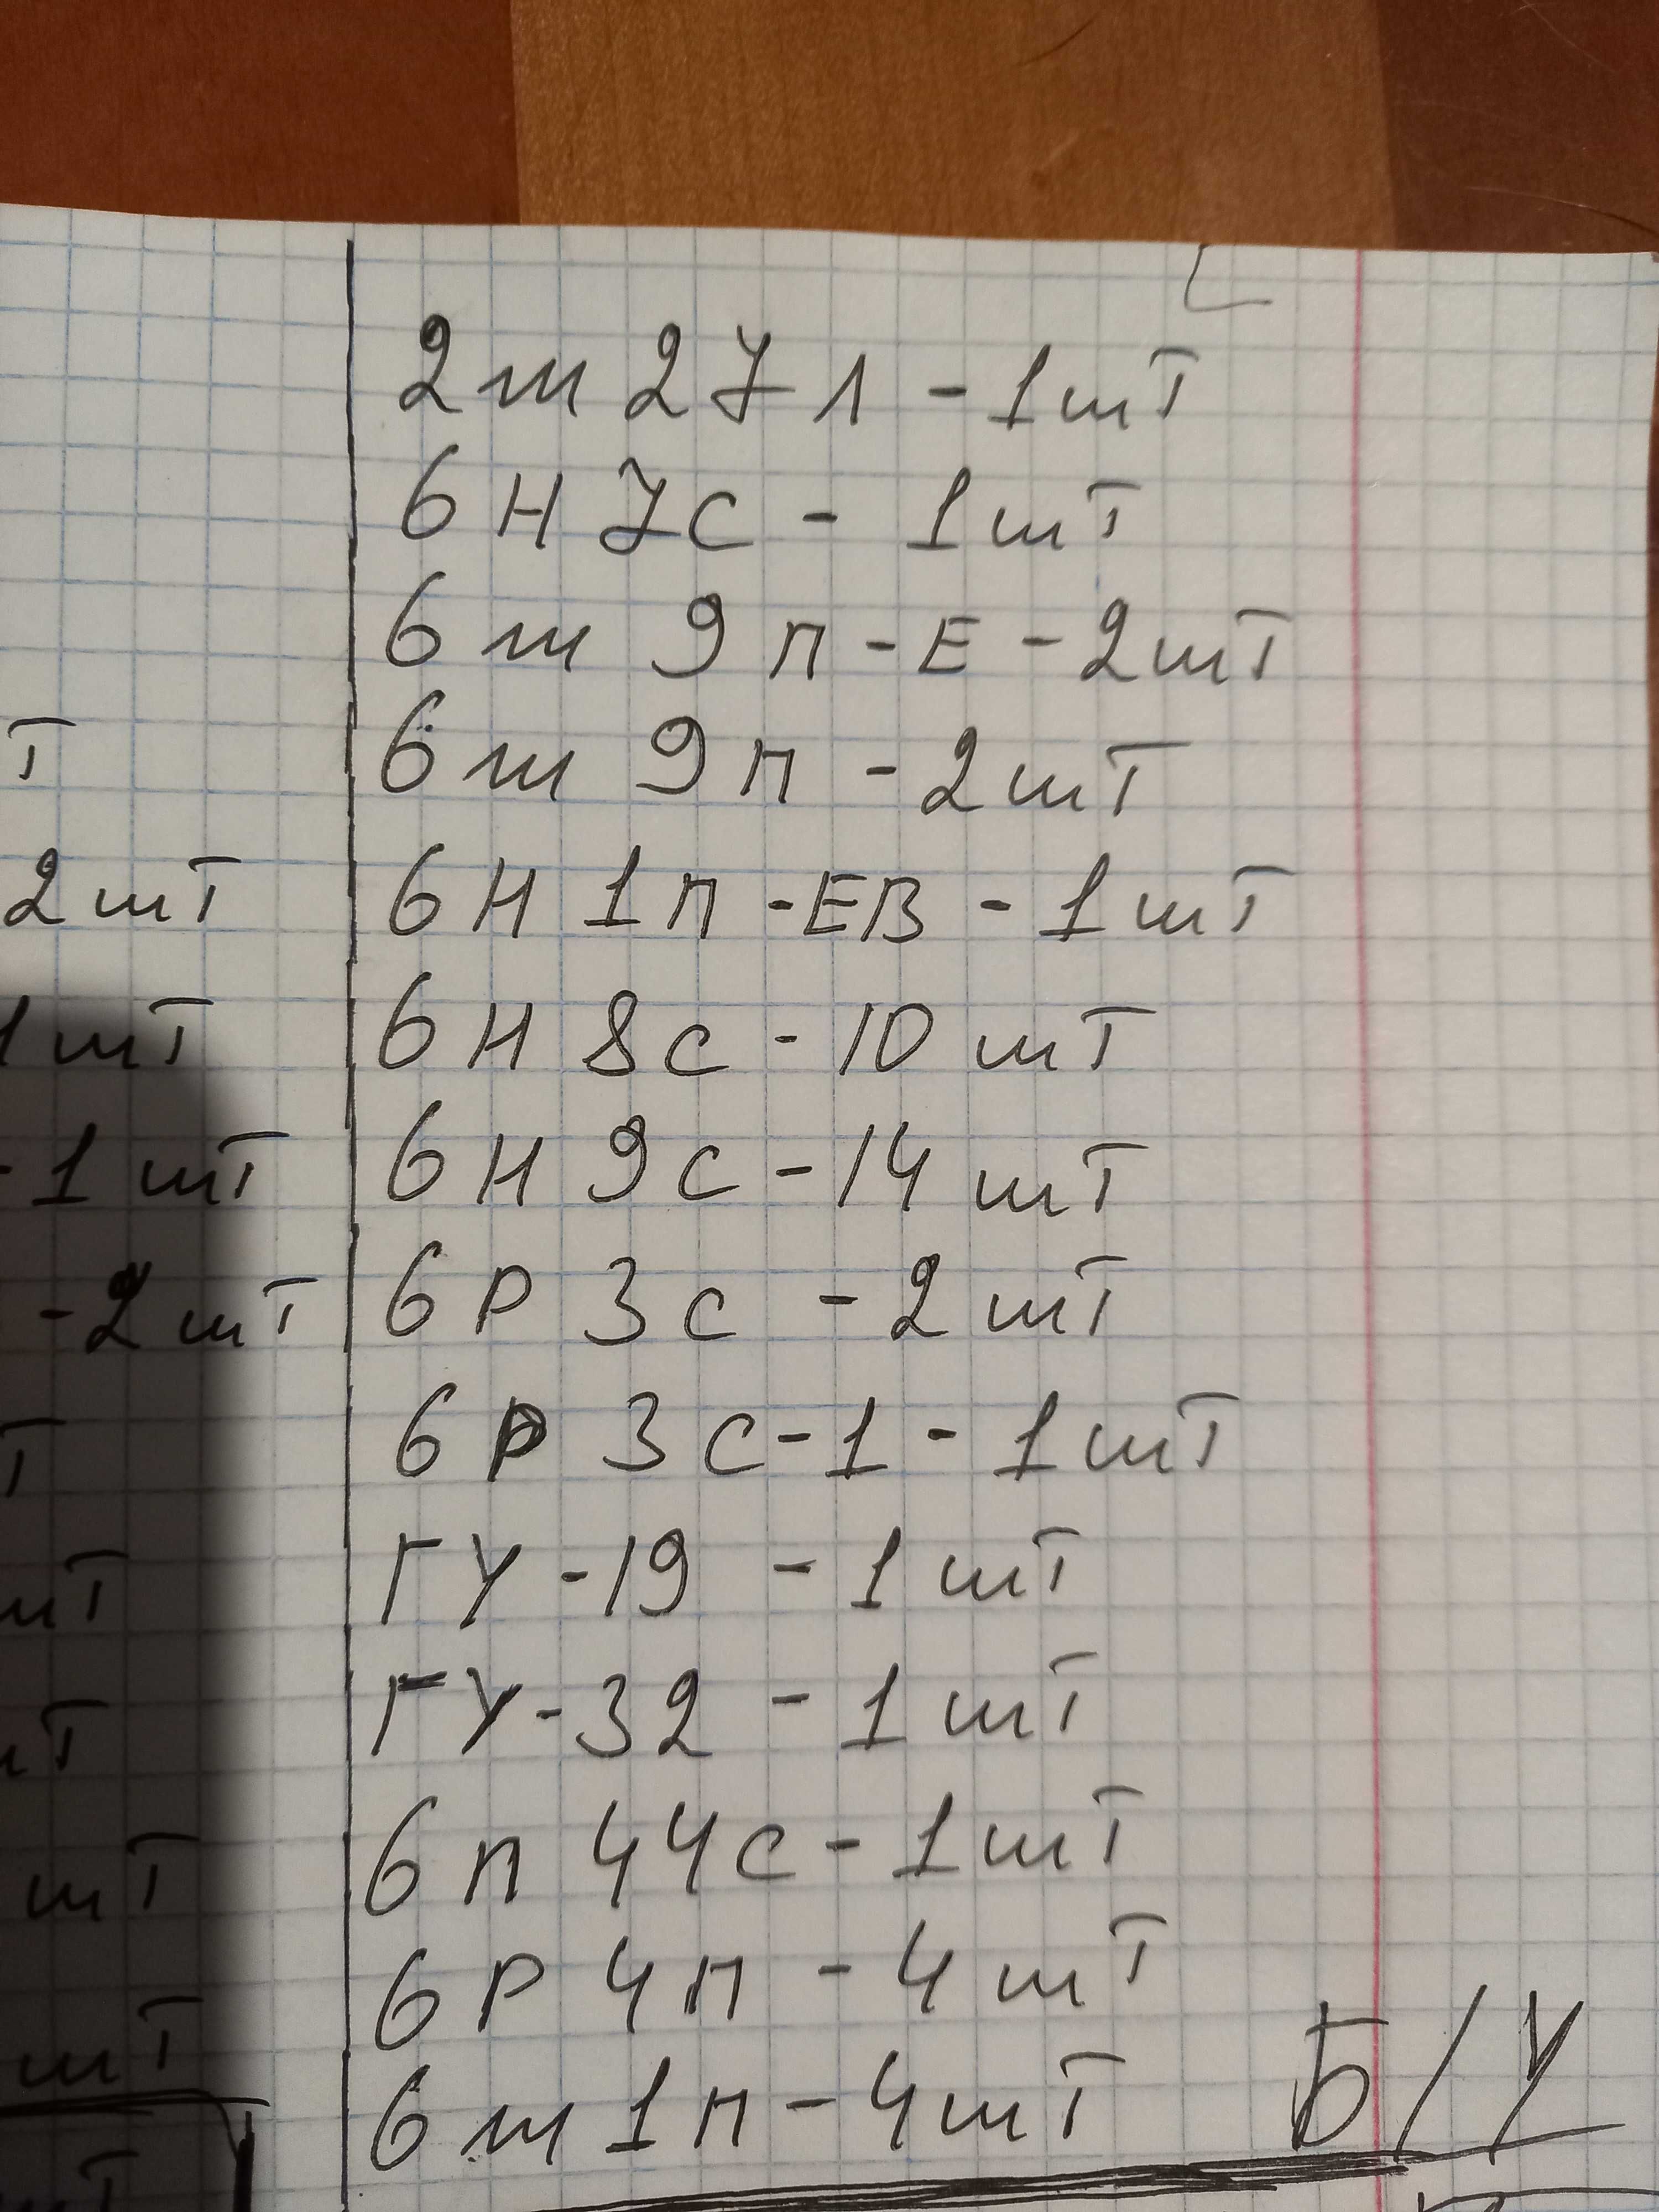 т
2шт
1шт
- 1 шт
- 2 шт
т
шт
т
шт
шт
шт
2ж27л - 1шт
6Н7С - 1шт
6ж9п - Е - 2шт
6ж9п - 2шт
6Н1п - ЕВ - 1шт
6Н8с - 10 шт
6Н9с - 14 шт
6Р3с - 2шт
6Р3с-1 - 1шт
ГУ-19 - 1шт
ГУ-32 - 1шт
6п44с - 1шт
6Р4п - 4шт
6ж1п - 4шт Б/У